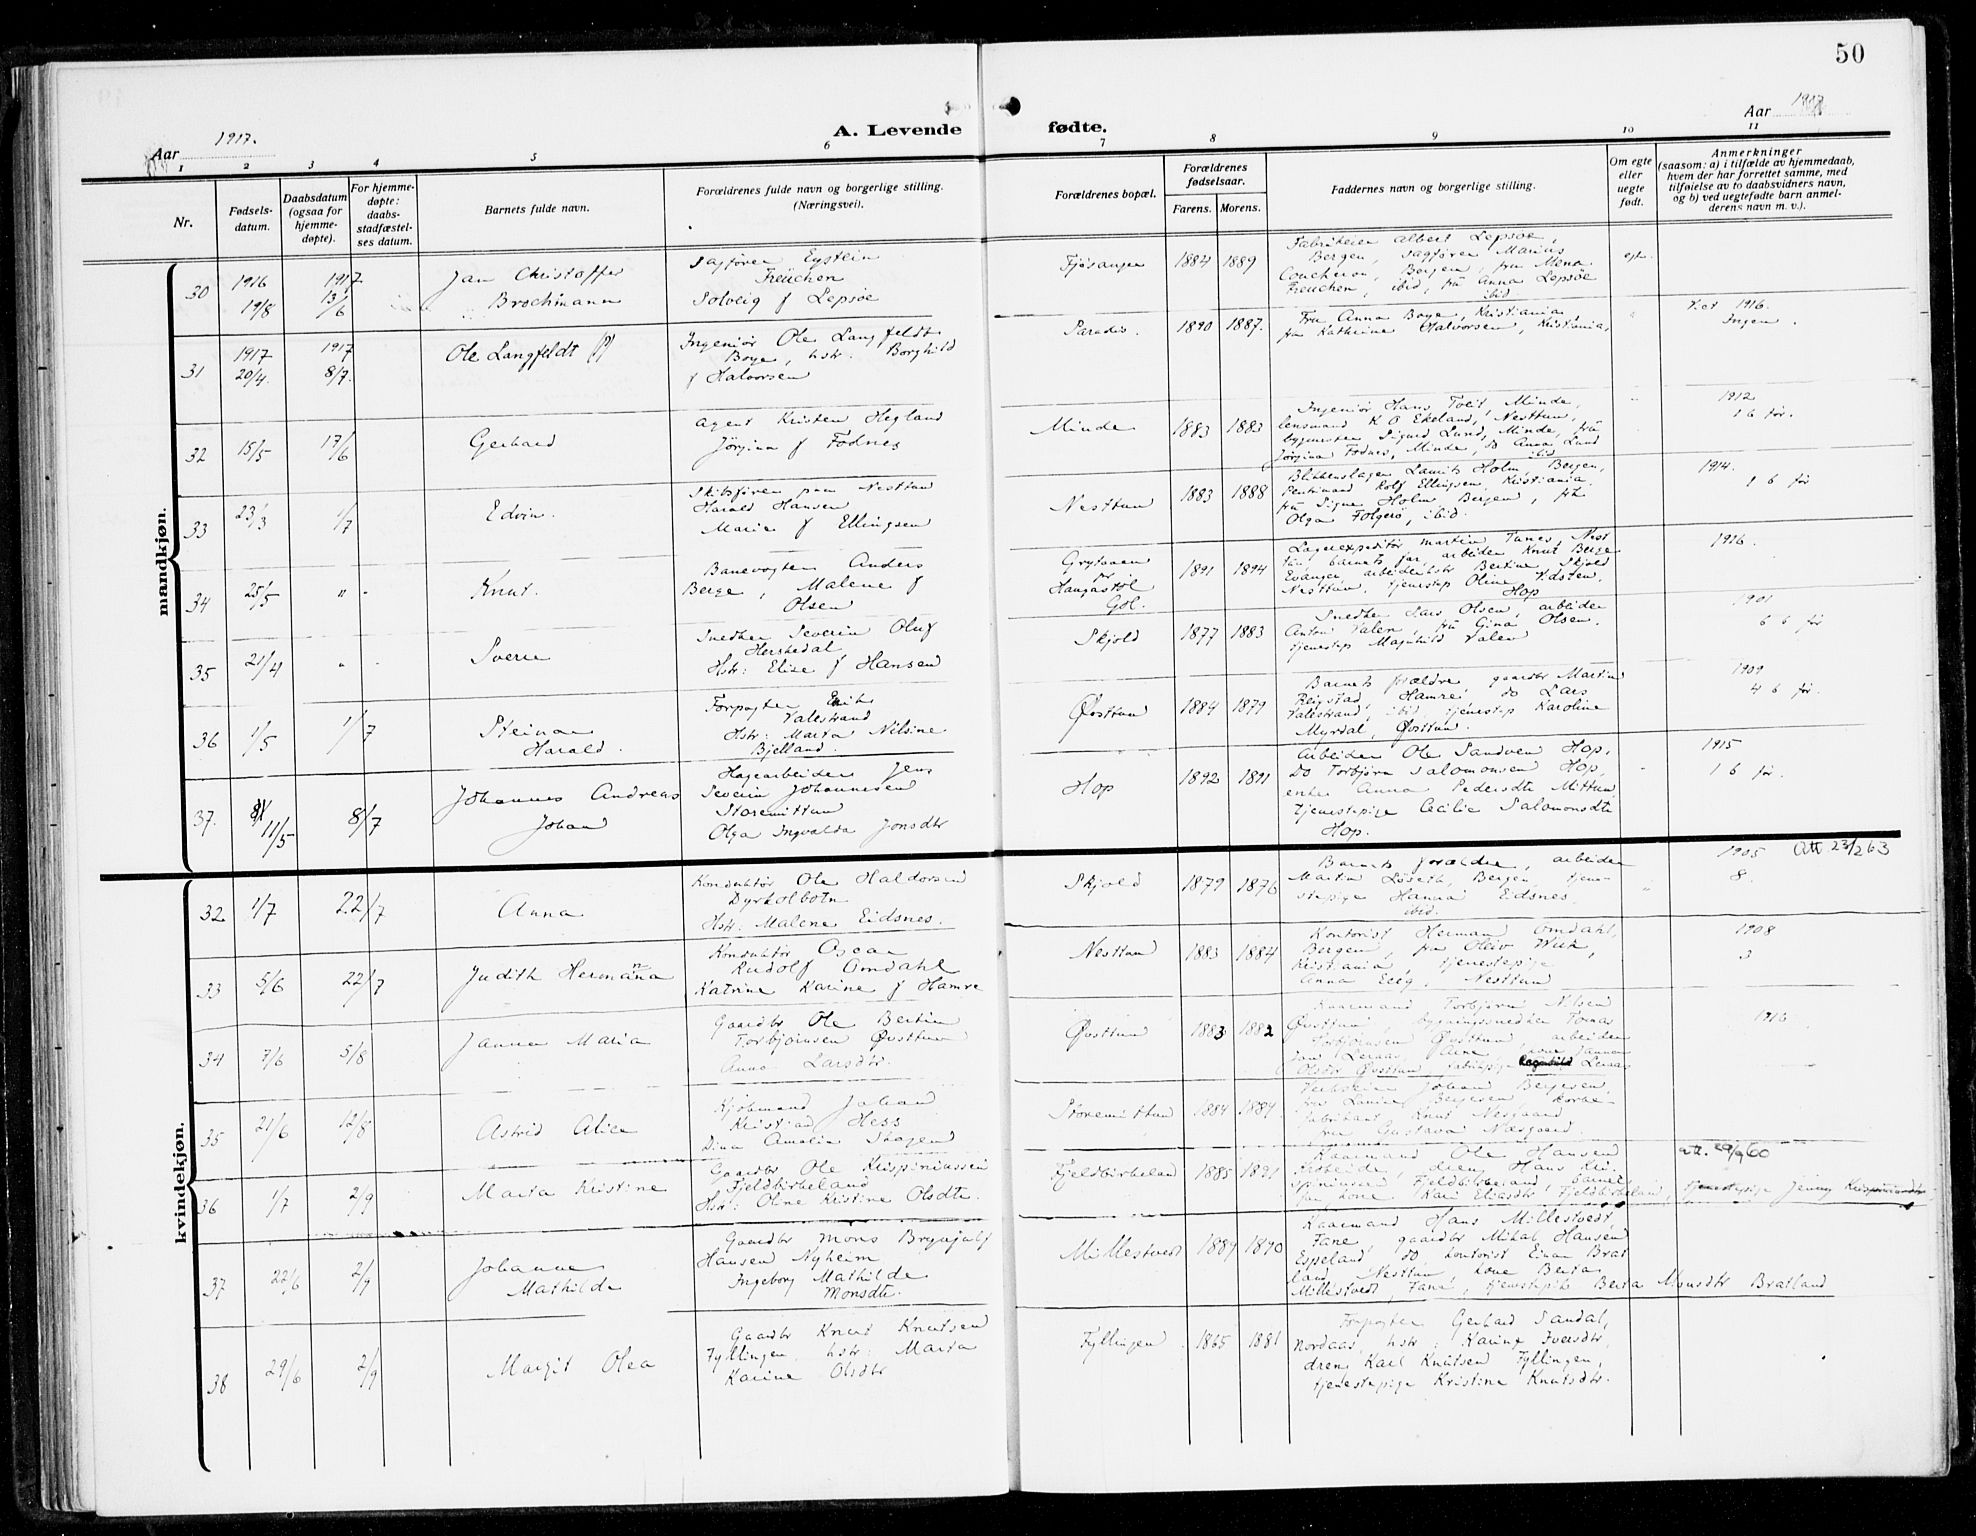 50
Aar 1917.
A. Levende fødte.
Aar 1917
1 2 3 4 5 6 7 8 9 10 11
Nr.
Fødsels-
datum.
Daabsdatum
(ogsaa for
hjemme-
døpte).
For hjemme-
døpte:
daabs-
stadfæstel-
ses datum.
Barnets fulde navn.
Forældrenes fulde navn og borgerlige stilling.
(Næringsvei).
Forældrenes bopæl.
Forældrenes
fødselsaar.
Farens. Morens.
Faddernes navn og borgerlige stilling.
Om egte
eller
uegte
født.
Anmerkninger
(saasom: a) i tilfælde av hjemmedaab,
hvem der har forrettet samme, med
tilføielse av to daabsvidners navn,
og b) ved uegtefødte barn anmel-
derens navn m. v.).
mandkjøn.
30
1916
19/8
1917
13/6
Jan Christoffer
Brochmann
Sagfører Eystein
Freuchen
Solveig f Lepsøe
Fjøsanger
1884 1889
Fabrikeier Albert Lepsøe,
Bergen, sagfører Marius
Coucheron, Bergen, fru Mena
Freuchen, ibid, fru Anna Lepsøe
ibid
egte.
31
1917
20/4.
1917
8/7.
Ole Langfeldt
Ingeniør Ole Langfeldt
Boye, hstr. Borghild
f Halvorsen
Paradis.
1890 1887.
Fru Anna Boye, Kristiania,
fru Kathrine Halvorsen, Kristiania,
1916.
Ingen.
32
15/5
17/6
Gerhard
Agent Kristen Hegland
Jørgine f Fodnes
Minde
1883 1883
Ingeniør Hans Tveit, Minde,
lensmand K O Ekeland, Nesttun,
bygmester Sigurd Lund, Minde, fru
Jørgine Fodnes, Minde, do Anna Lund
ibid
1912
1 b før.
33
23/3
1/7
Edvin.
Skibsfører paa Nesttun
Harald Hansen
Marie f Ellingsen
Nesttun
1883 1888
Blikkenslager Laurits Holm, Bergen,
Rolf Ellingsen, Kristiania.
fru Signe Holm, Bergen, frk
Olga Folgerø, ibid.
1914.
1 b før
34
25/5
" -
Knut.
Banevogter Anders
Berge, Malene f
Olsen
Grytaaen
pr
Haugastøl
Gol.
1891 1894
Lagerexpeditør Martin Tunes, Nest
tun, barnets far, arbeider Knut Berge
Evanger, arbeiderhstr Bertine Skjold
Nesttun, tjenestep Oline Vdsten.
Hop
1916.
35
21/4
" -
Sverre
Snedker Severin Oluf
Hershedal
Hstr: Elise f Hansen
Skjold
1877 1883
Snedker Lars Olsen, arbeider
Anton Valen, fru Gina Olsen.
tjenestep Magnhild Valen
1901
6 b før
36
1/5
1/7
Steinar
Harald.
Forpagter Erik
Valestrand
Hstr: Marta Nilsine
Bjelland.
Øvsttun
1884 1879
Barnets forældre gaardbr Martin
Reigstad, Hamre, do Lars
Valestrand, ibid, tjenestep Karoline
Myrdal, Øvsttun.
1909
4 b før.
37.
11/5
8/7
Johannes Andreas
Johan
Hagearbeider Jens
Severin Johannesen
Storemittun
Olga Ingvalda Jonsdtr
Hop
1892 1891
Arbeider Ole Sandven Hop,
Do Torbjørn Salomonsen Hop,
enke Anna Pedersdtr Mittun,
tjenestepige Cecilie Salomonsdtr
Hop.
1915
1 b før.
kvindekjøn.
32.
1/7
22/7
Anna
Konduktør Ole Haldorsen
Dyrkolbotn
Hstr: Malene Eidsnes.
Skjold
1879 1876
Barnets forældre, arbeider
Martin Løseth, Bergen, tjene-
stepige Hanna Eidsnes
ibid.
1905
8.
Att. 23/2 63
33
5/6
22/7
Judith Hermanna
Konduktør Oscar
Rudolf Omdahl
Katrine Karine f Hamre
Nesttun
1883 1884
Kontorist Herman Omdahl,
Bergen, fru Oliv Wiik,
Kristiania, tjenestepige
Anna Eeg, Nesttun
1908
3
34
7/6
5/8
Janna Maria
Gaardbr Ole Bertin
Torbjørnsen Øvsttun
Anna Larsdtr.
Øvsttun
1883 1882
Kaarmand Torbjørn Nilsen
Øvsttun, bygningssnedker Tomas
Torbjørnsen Øvsttun, arbeider
Lars Leraas, Arne, kone Janna
Olsdtr Øvsttun, fabrikspige Leraas
1916
35
21/6
12/8
Astrid Alice
Kjøbmand Johan
Kristian Hess
Dina Amalie Skagen
Storemittun
1884 1884.
Johan Bergesen,
fru Bergesen
fabrikant Knut Nesgaard
fru Gustava Næsgaard.
36
1/7
2/9
Marta Kristine
Gaardbr Ole Krispiniussen
Fjeldbirkeland
Hstr: Oline Kristine Olsdtr.
Fjeldbirkeland
1885 1891
Kaarmand Ole Hansen
Arbeide, dreng Hans Kri-
spiniussen Fjeldbirkeland, barnets
far kone Kari Eliasdtr Fjeldbirkeland, tjenestepige Jenny Krispiniusdtr
att. 29/9 60
37
22/6
2/9
Johanne
Mathilde
Gaardbr Mons Brynjulf
Hansen Nyheim
Ingeborg Mathilde
Monsdtr.
Millestvedt
1889 1890
Kaarmand Hans Millestvedt,
Fane, gaardbr Mikal Hansen
Espeland, do kontorist Einar Brat
land, Nesttun, kone Berta
Millestvedt, Fane, tjenestepik Berta Monsdtr Bratland
38
29/6
2/9
Margit Olea
Gaardbr Knut Knutsen
Fyllingen, hstr: Marta
Karine Olsdtr
Fyllingen
1865 1881
Forpagter Gerhard Sandal,
Nordaas, hstr. Karine Iversdtr,
dreng Karl Knutsen Fyllingen,
tjenestepige Kristine Knutsdtr.